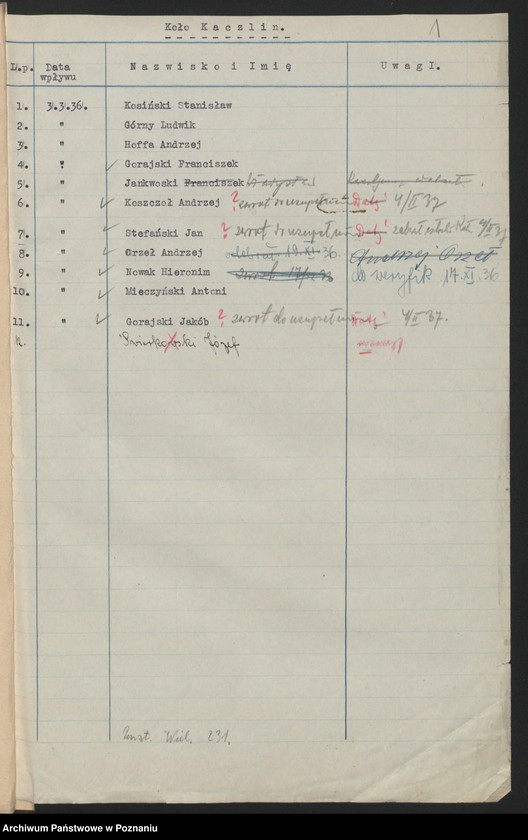 Koło Kaczlin.
1
L.p. Data wpływu Nazwisko i Imię Uwagi.
1. 3.3.36. Kosiński Stanisław
2. " Górny Ludwik
3. " Hoffa Andrzej
4. " Gorajski Franciszek
5. " Jankwoski Franciszek
6. " Koszczoł Andrzej ? zwrot do uzupełn. 4/II 37
7. " Stefański Jan ? zwrot do uzupełn.
8. " Orzeł Andrzej 19 XI 36. Andrzej Orzeł
9. " Nowak Hieronim do weryfik 17. XI. 36
10. " Mieczyński Antoni
11. " Gorajski Jakób ? zwrot do uzupełn. 4/II 37.
Józef
231.
Archiwum Państwowe w Poznaniu